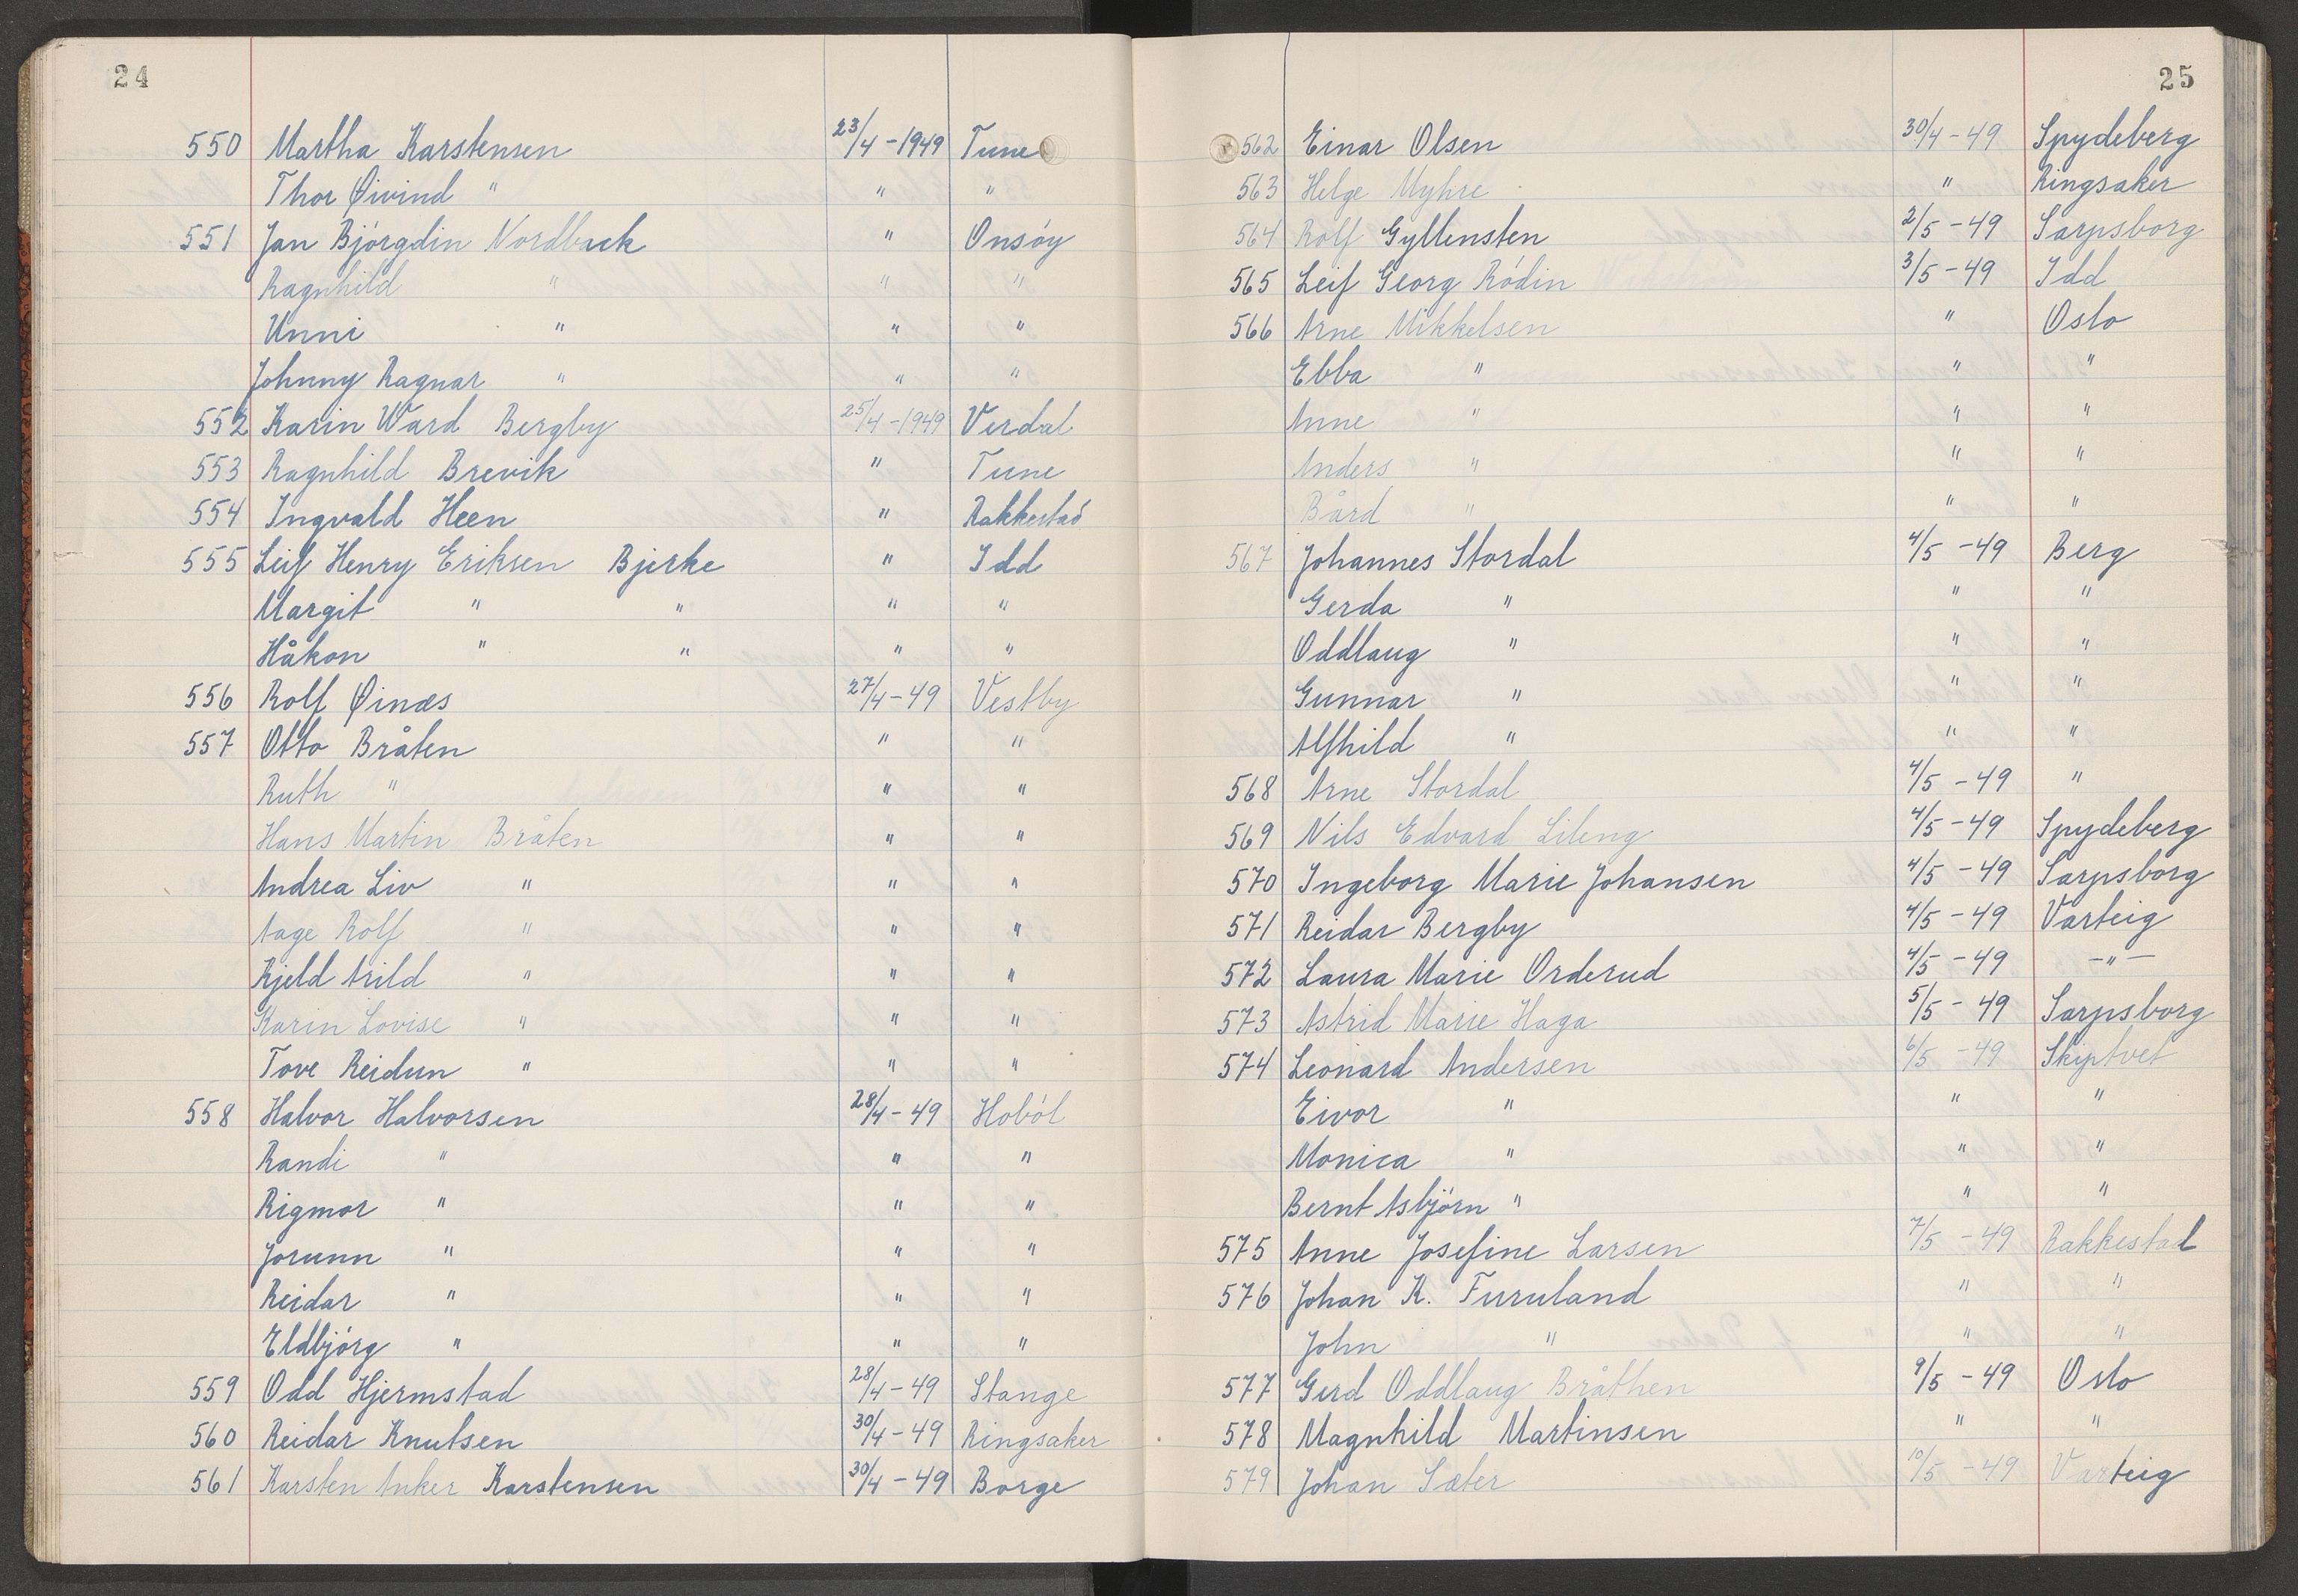 24
550 Martha Karstensen 23/4-1949 Tune
Thor Øivind " " "
551 Jan Bjørgdin Nordback " Onsøy
Ragnhild " " "
Unni " " "
Johnny Ragnar " " "
552 Karin Ward Bergby 25/4-1949 Verdal
553 Ragnhild Brevik " Tune
554 Ingvald Heen " Rakkestad
555 Leif Henry Eriksen Bjerke " Idd
Margit " " " "
Håkon " " " "
556 Rolf Øinæs 27/4-49 Vestby
557 Otto Bråten " "
Ruth " " "
Hans Martin Bråten " "
Andrea Liv " " "
Aage Rolf " " "
Kjeld Arild " " "
Karin Lovise " " "
Tove Reidun " " "
558 Halvor Halvorsen 28/4-49 Hobøl
Randi " " "
Rigmor " " "
Jorunn " " "
Reidar " " "
Eldbjørg " " "
559 Odd Hjermstad 28/4-49 Stange
560 Reidar Knutsen 30/4-49 Ringsaker
561 Karsten Anker Karstensen 30/4-49 Borge
25
562 Einar Olsen 30/4-49 Spydeberg
563 Helge Myhre " Ringsaker
564 Rolf Gyllensten 2/5-49 Sarpsborg
565 Leif Georg Rødin 3/5-49 Idd
566 Arne Mikkelsen " Oslo
Ebba " " "
Anne " " "
Anders " " "
Bård " " "
567 Johannes Stordal 4/5-49 Berg
Gerda " " "
Oddlaug " " "
Gunnar " " "
Alfhild " " "
568 Arne Stordal 4/5-49 "
569 Nils Edvard Lileng 4/5-49 Spydeberg
570 Ingeborg Marie Johansen 4/5-49 Sarpsborg
571 Reidar Bergby 4/5-49 Varteig
572 Laura Marie Orderud 4/5-49 -"-
573 Astrid Marie Haga 5/5-49 Sarpsborg
574 Leonard Andersen 6/5-49 Skiptvet
Eivor " " "
Monica " " "
Bernt Asbjørn " " "
575 Anne Josefine Larsen 7/5-49 Rakkestad
576 Johan K. Furuland " "
John " " "
577 Gerd Oddlaug Bråthen 9/5-49 Oslo
578 Magnhild Martinsen " "
579 Johan Sæter 10/5-49 Varteig